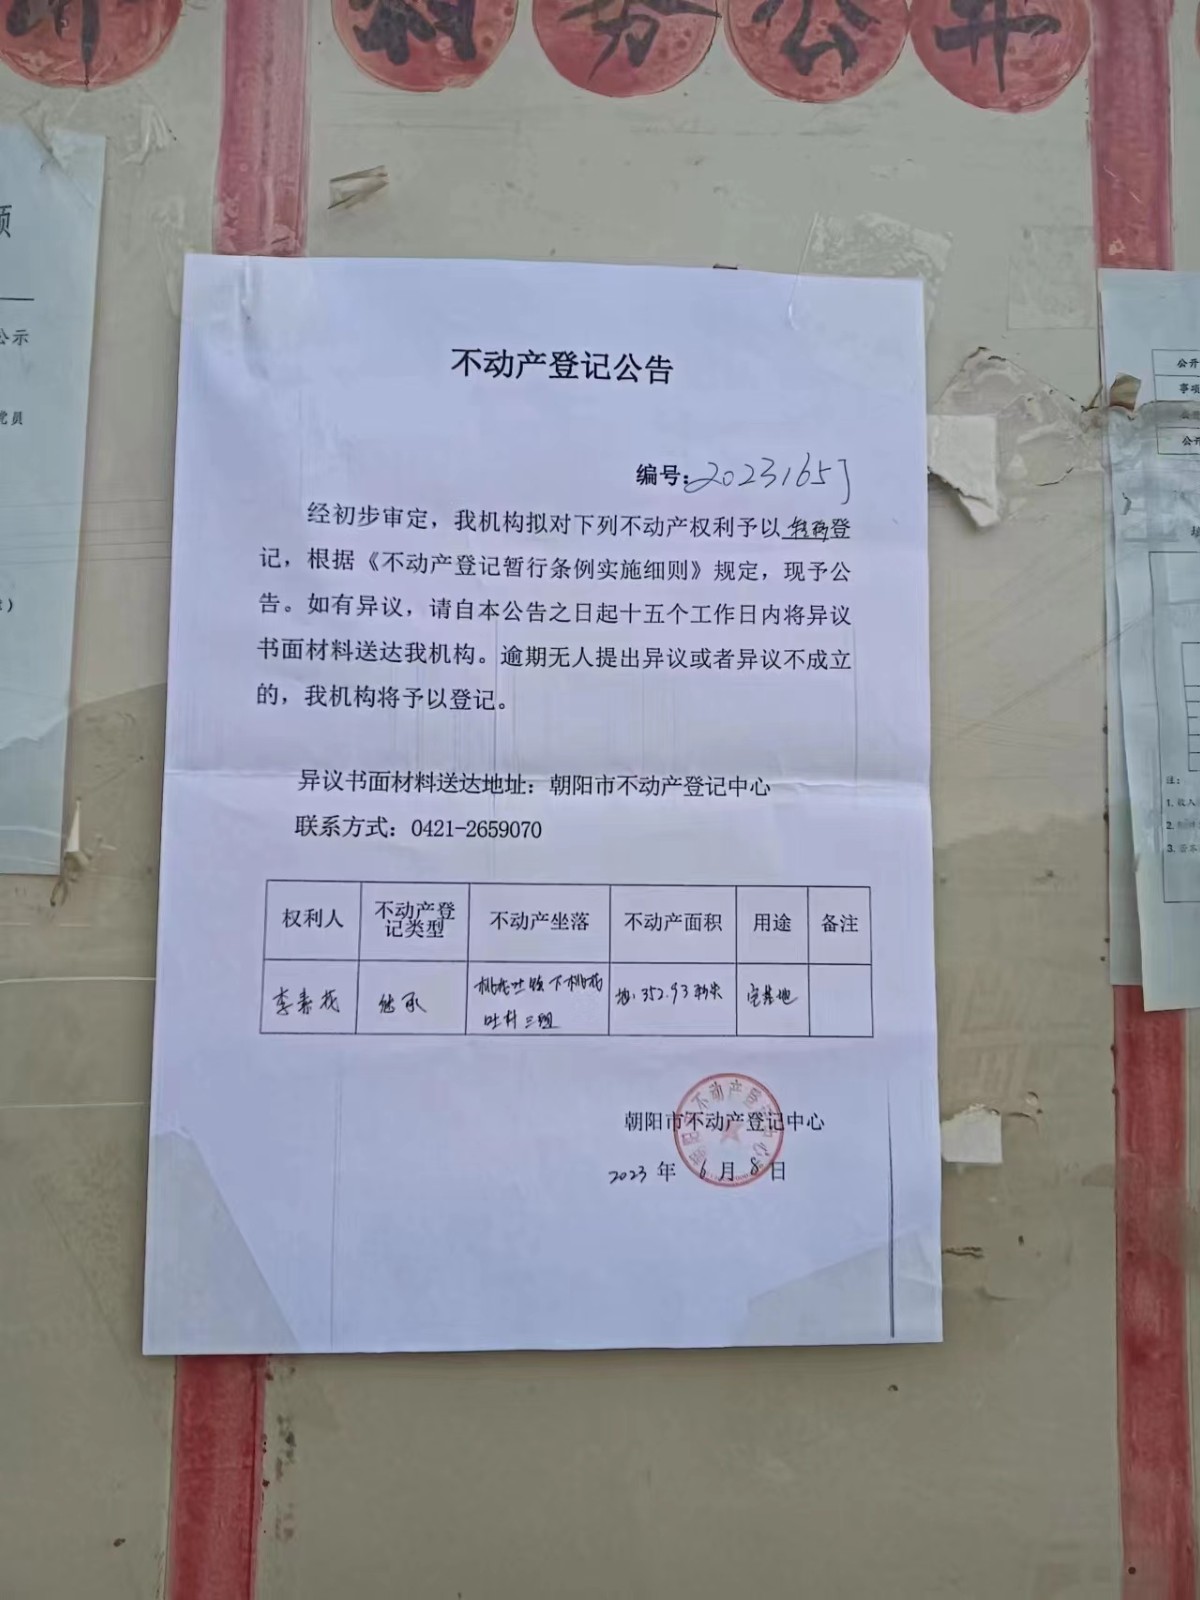 务公开
不动产登记公告
编号:2023165J
经初步审定，我机构拟对下列不动产权利予以转移登
记，根据《不动产登记暂行条例实施细则》规定，现予公
告。如有异议，请自本公告之日起十五个工作日内将异议
书面材料送达我机构。逾期无人提出异议或者异议不成立
的，我机构将予以登记。
异议书面材料送达地址：朝阳市不动产登记中心
联系方式：0421-2659070
权利人 不动产登记类型 不动产坐落 不动产面积 用途 备注
李素茂 继承 桃花吐镇下桃花吐村三组 地:352.93平米 宅基地
朝阳市不动产登记中心
2023年 6月8日
公示
党员
公开
事项
公开
注:
1. 收入
2.
3.